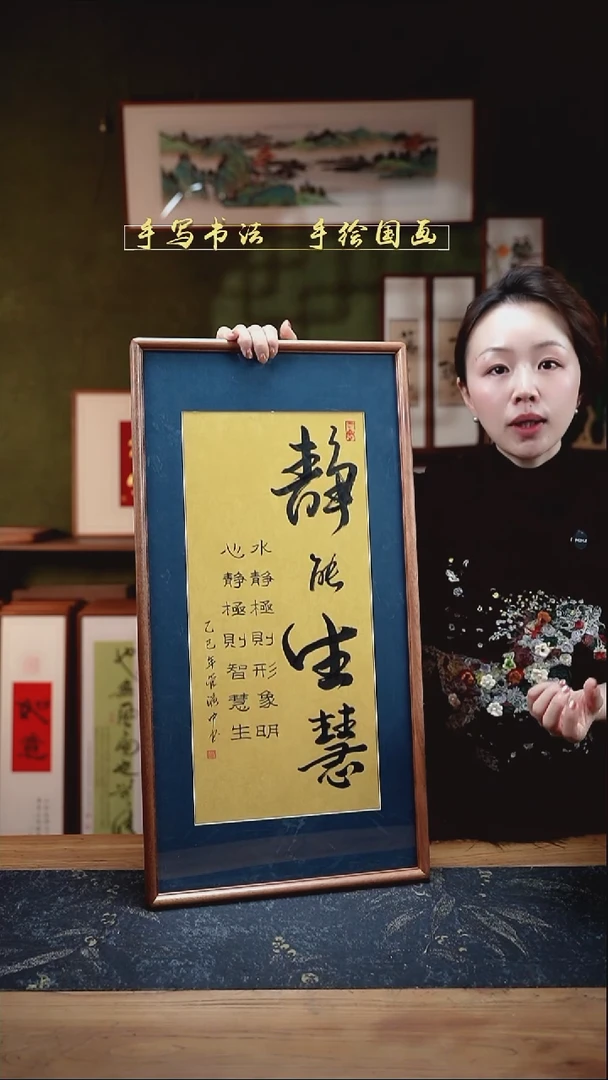 手写书法 手绘国画
静能生慧
水靜極則形象明
心靜極則智慧生
乙巳年
如意